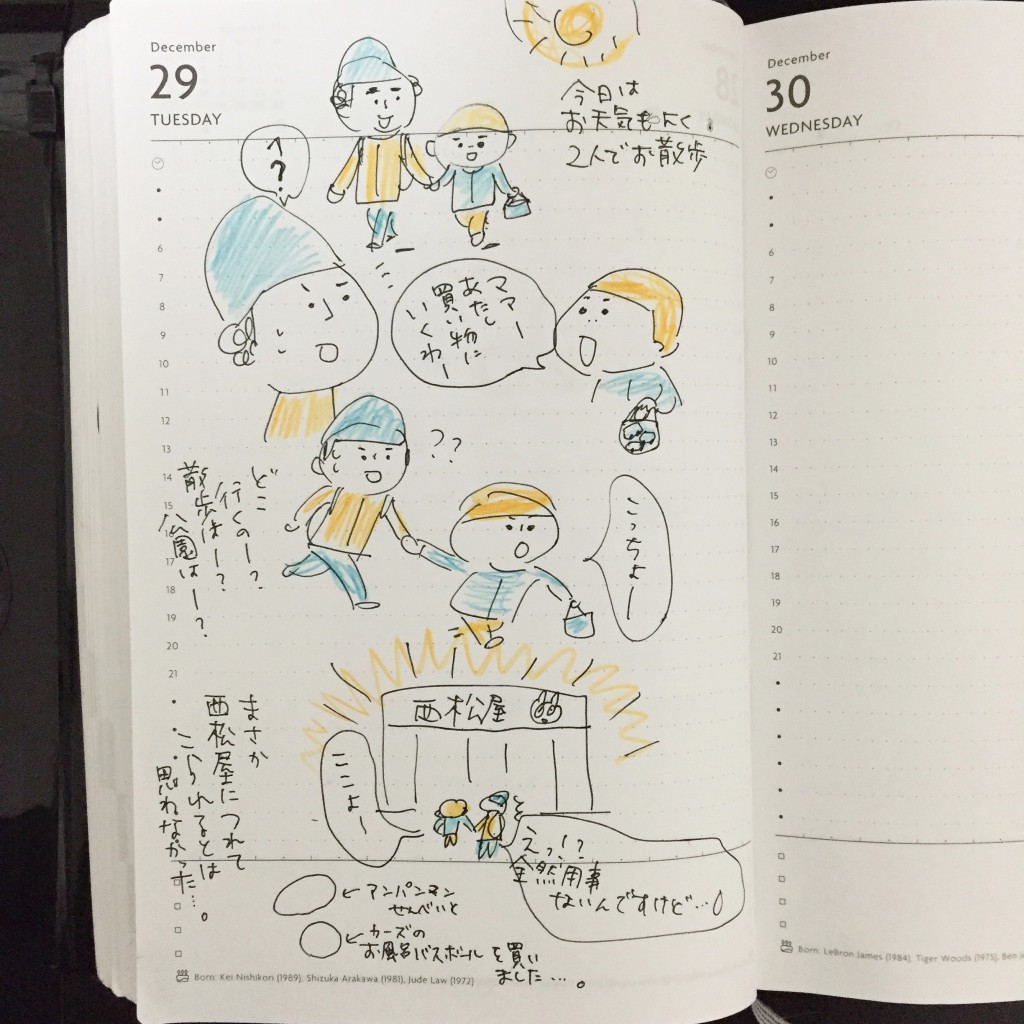 December
29
TUESDAY
今日は
お天気もよく。
2人でお散歩
へ?
ママー
あたし
買い物に
いくわー
??
どこ
行くのー?
散歩はー?
公園はー?
こっちよー
西松屋
まさか
西松屋につれて
こられるとは
思わなかった…。
ここよー
えっ!?
全然用事
ないんですけど…
←アンパンマン
せんべいと
←カーズの
お風呂バスボールを買い
ました…。
6
7
8
9
10
11
12
13
14
15
16
17
18
19
20
21
Born: Kei Nishikori (1989), Shizuka Arakawa (1981), Jude Law (1972)
December
30
WEDNESDAY
6
7
8
9
10
11
12
13
14
15
16
17
18
19
20
21
Born: LeBron James (1984), Tiger Woods (1975), Ben